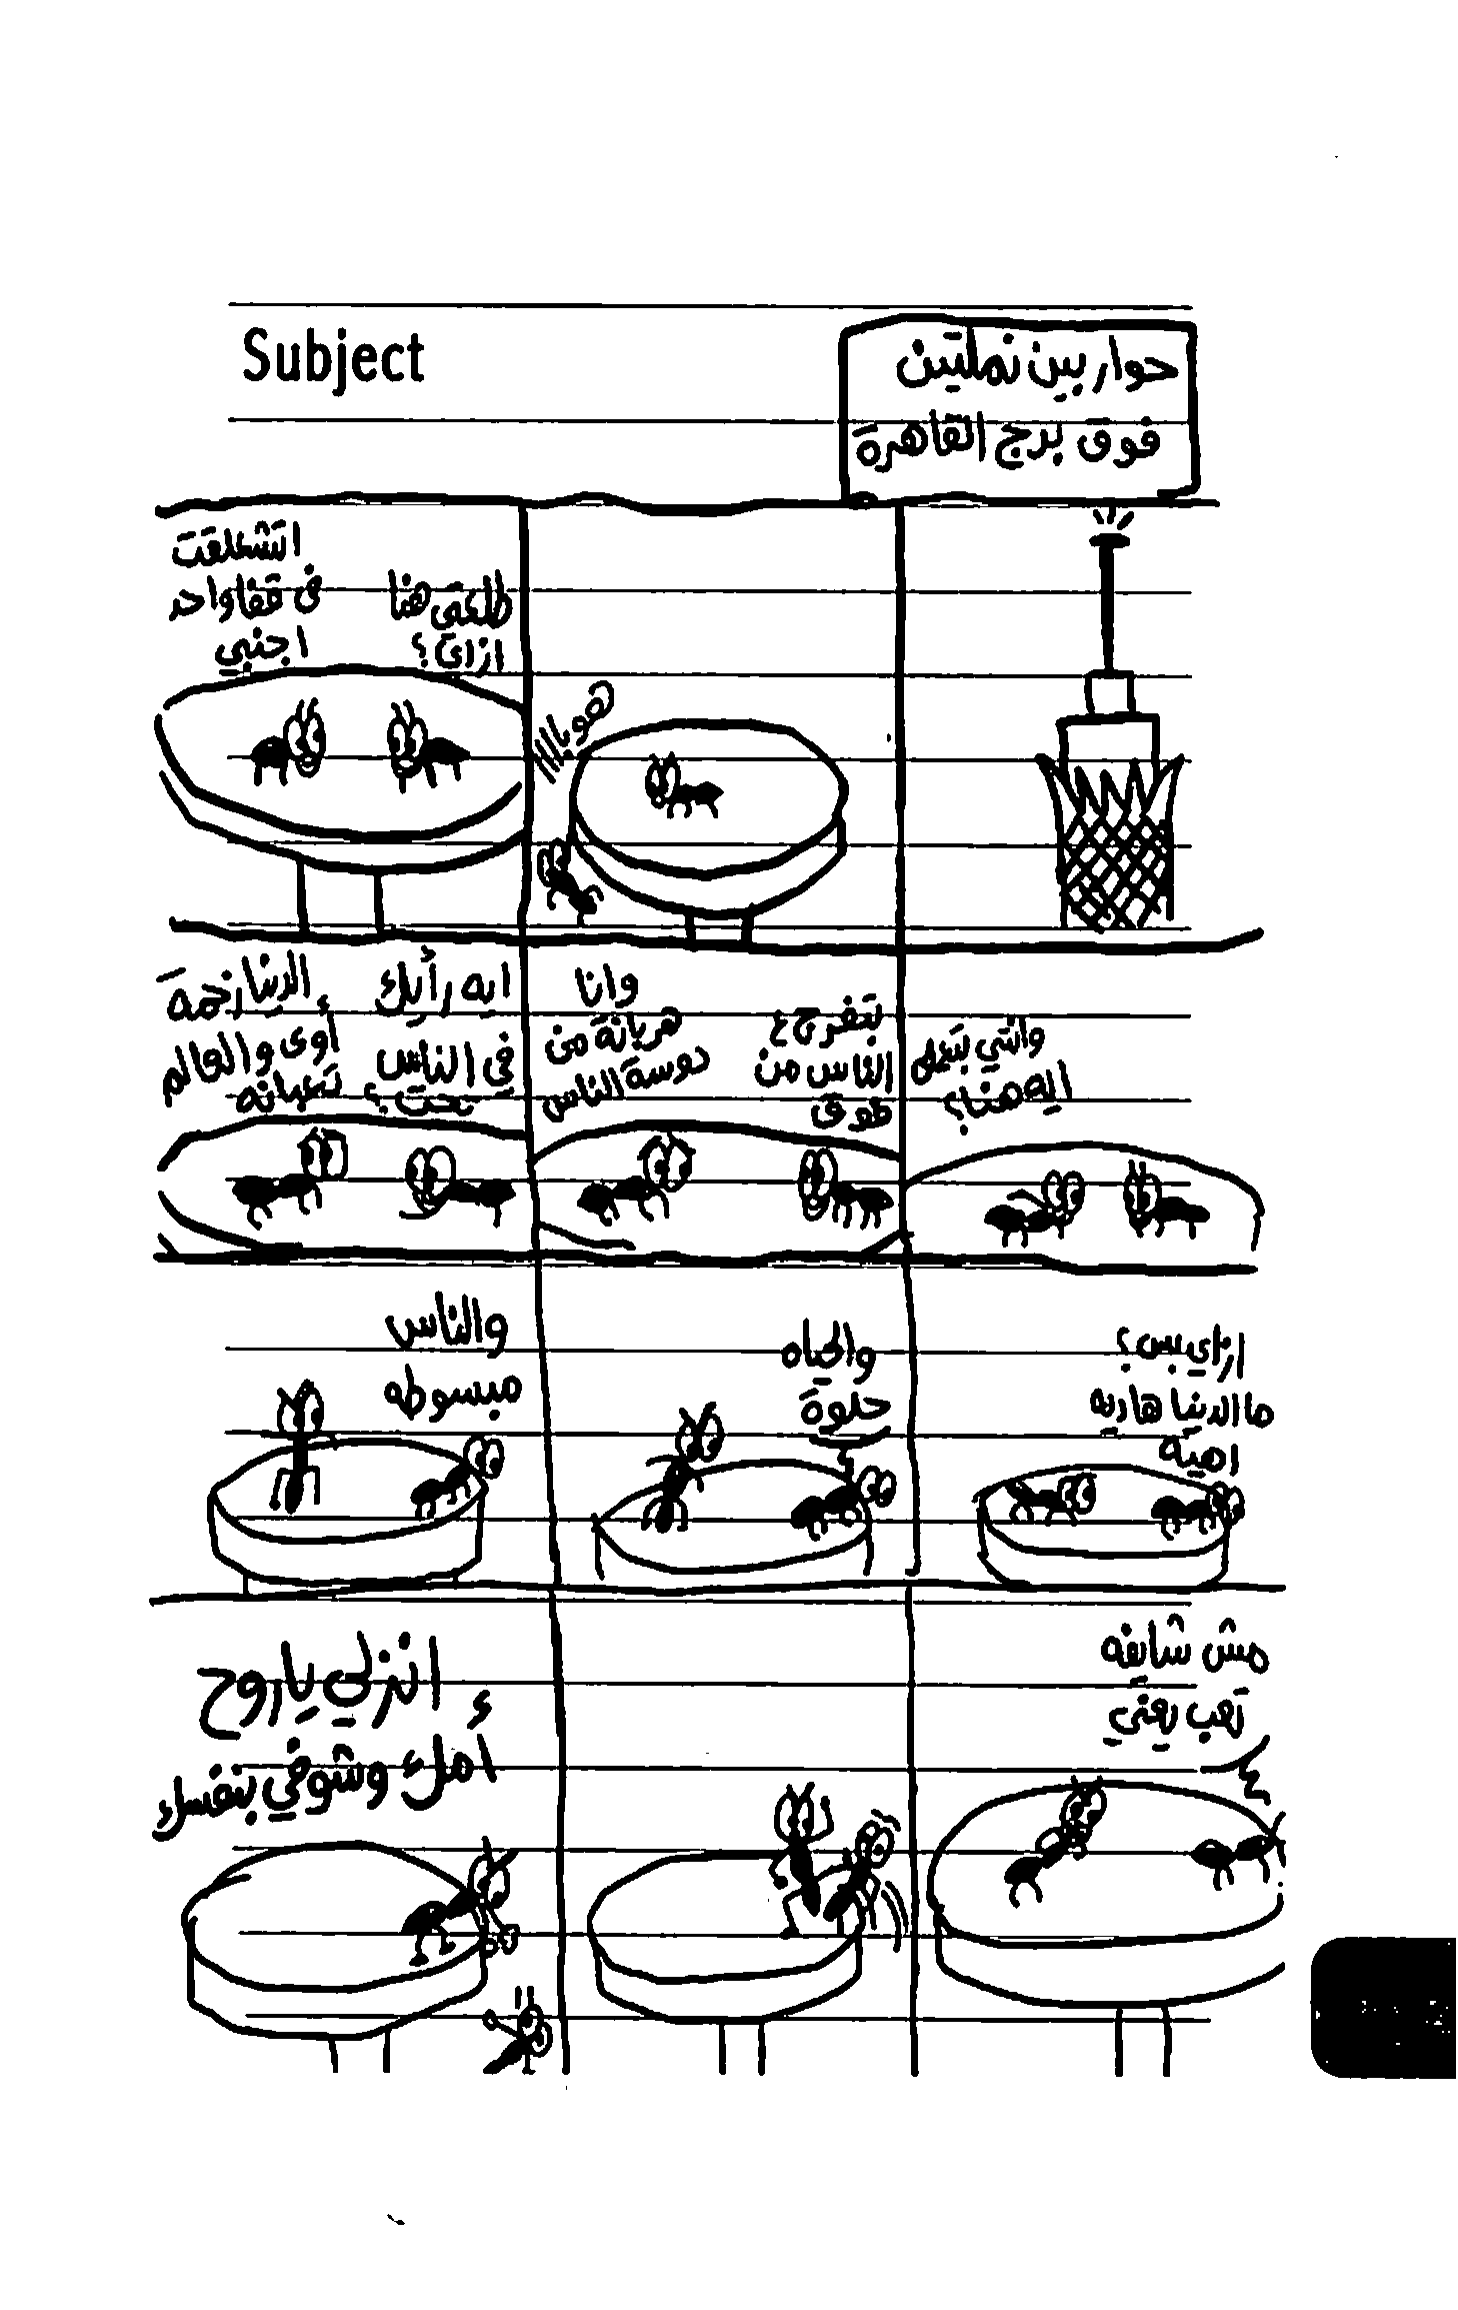 Subject
حوار بين نملتين
فوق برج القاهرة
هوبااا
طلعتي هنا
ازاي؟
اتشعلقت
في قفا واحد
اجنبي
وانتي بتعملي
ايه هنا؟
بتفرج ع
الناس من
فوق
وانا
هربانة من
دوسة الناس
ايه رأيك
في الناس
تحت؟
الدنيا زحمة
أوى والعالم
تعبانه
ازاي بس؟
ما الدنيا هاديه
اهيه
والحياه
حلوة
والناس
مبسوطه
مش شايفه
تعب يعني
انزلي ياروح
أمك وشوفي بنفسك